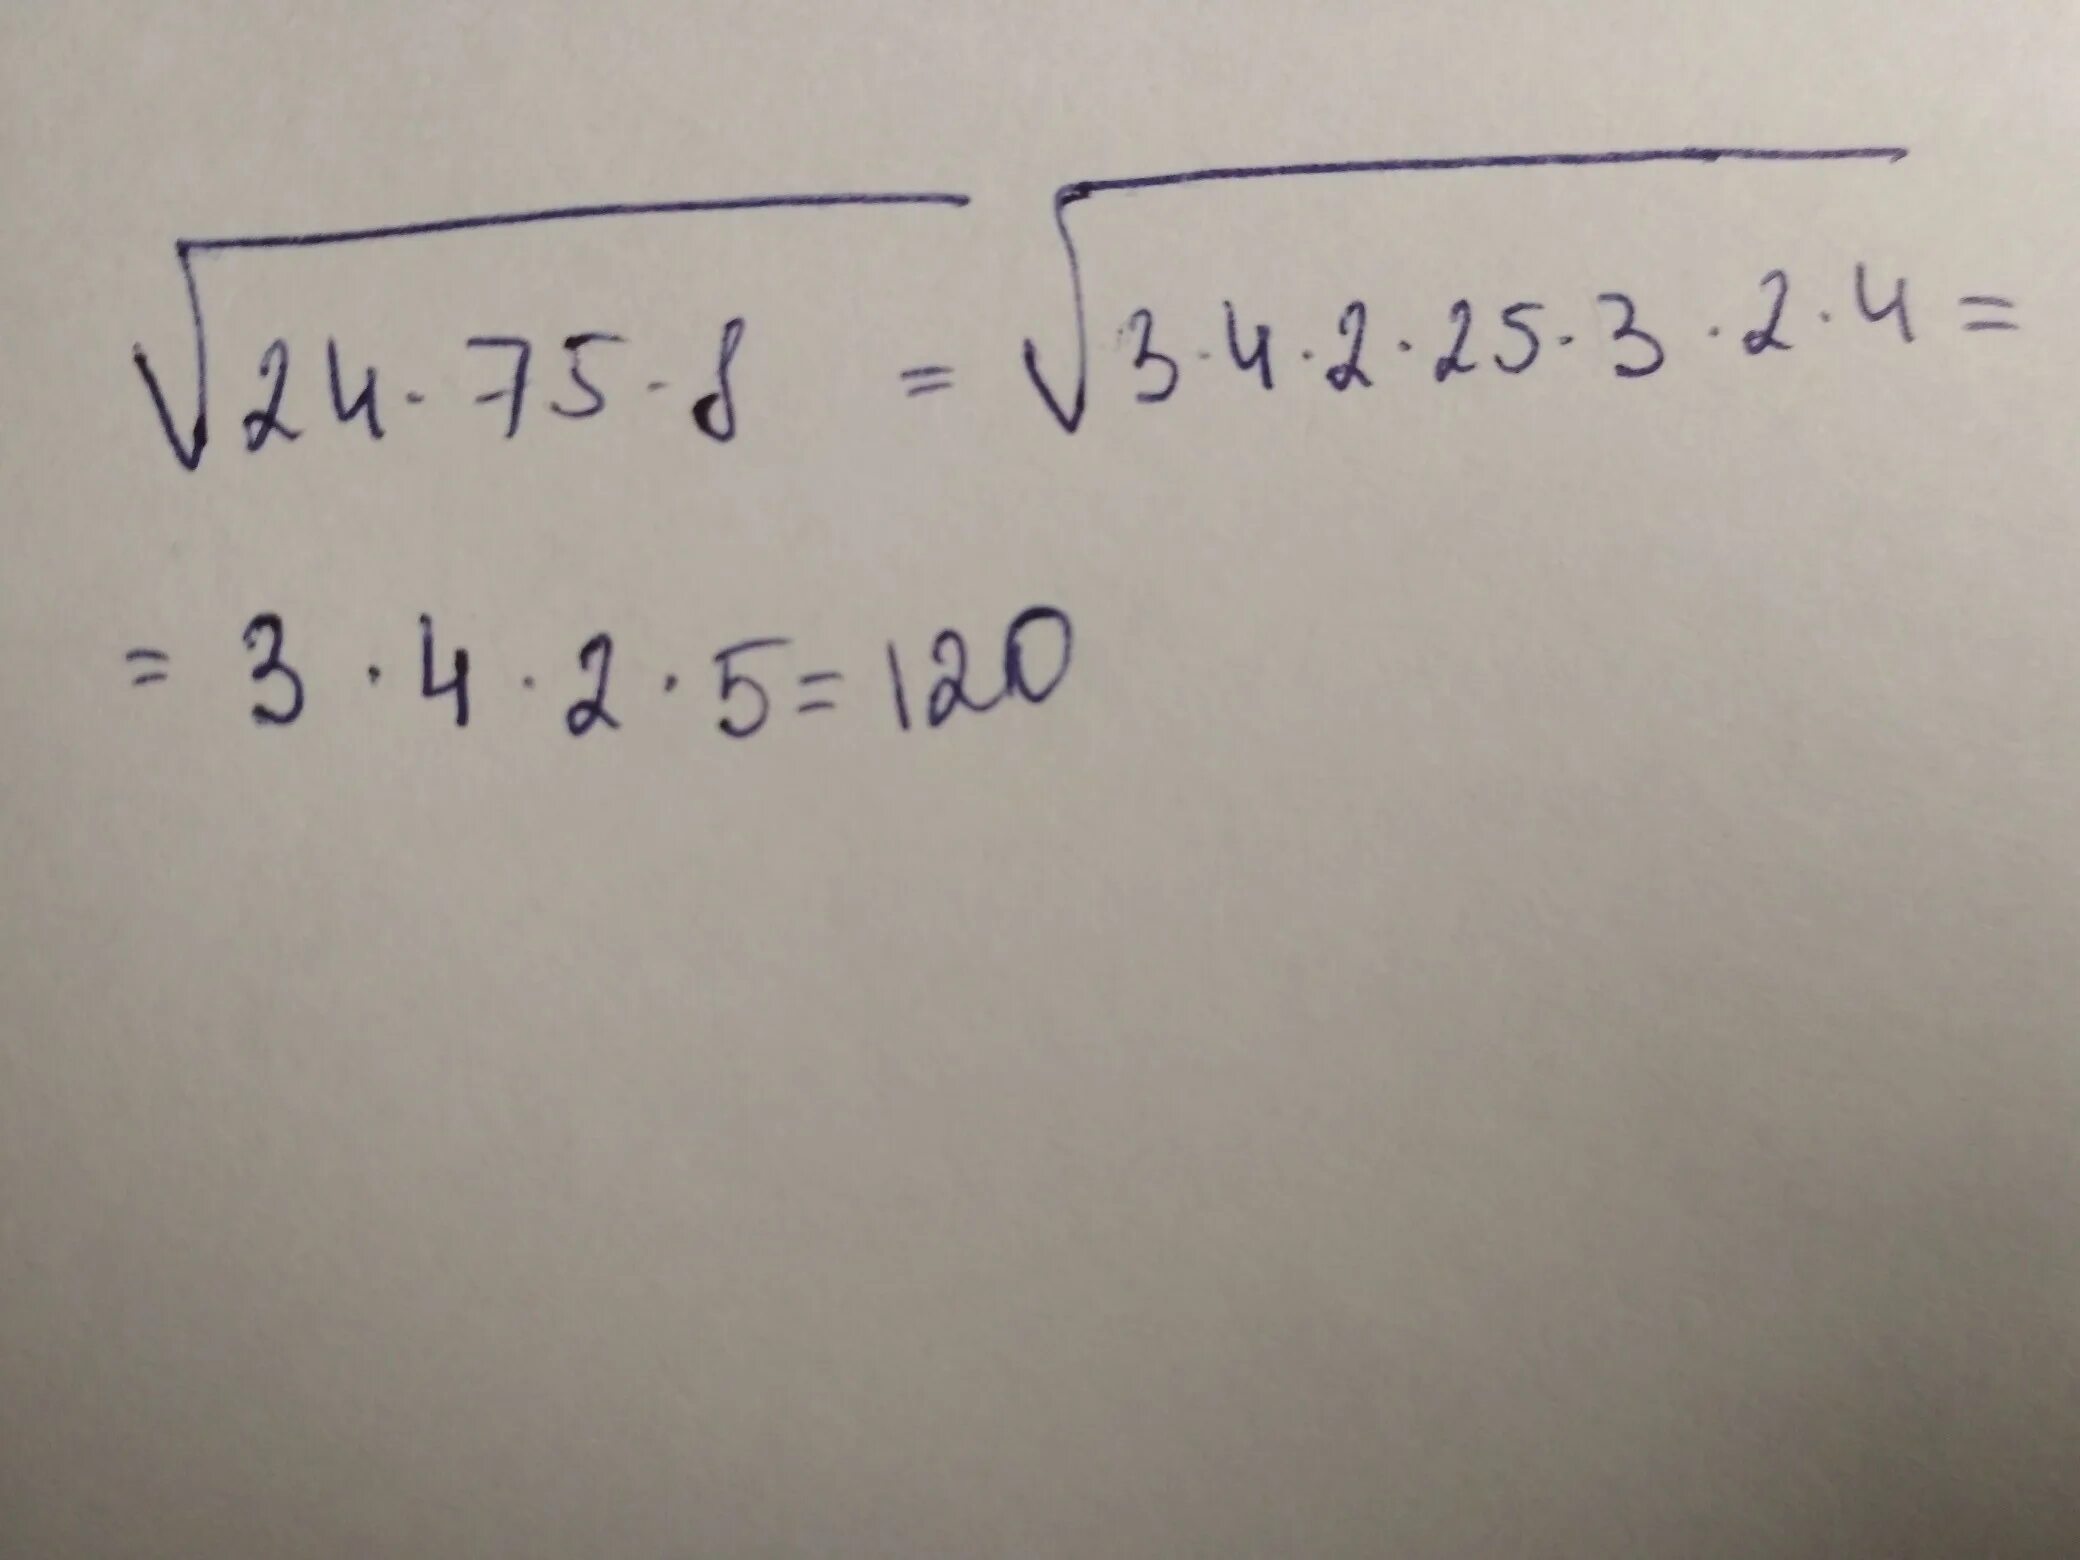 √24·75·8 = √3·4·2·25·3·2·4 =
= 3·4·2·5=120